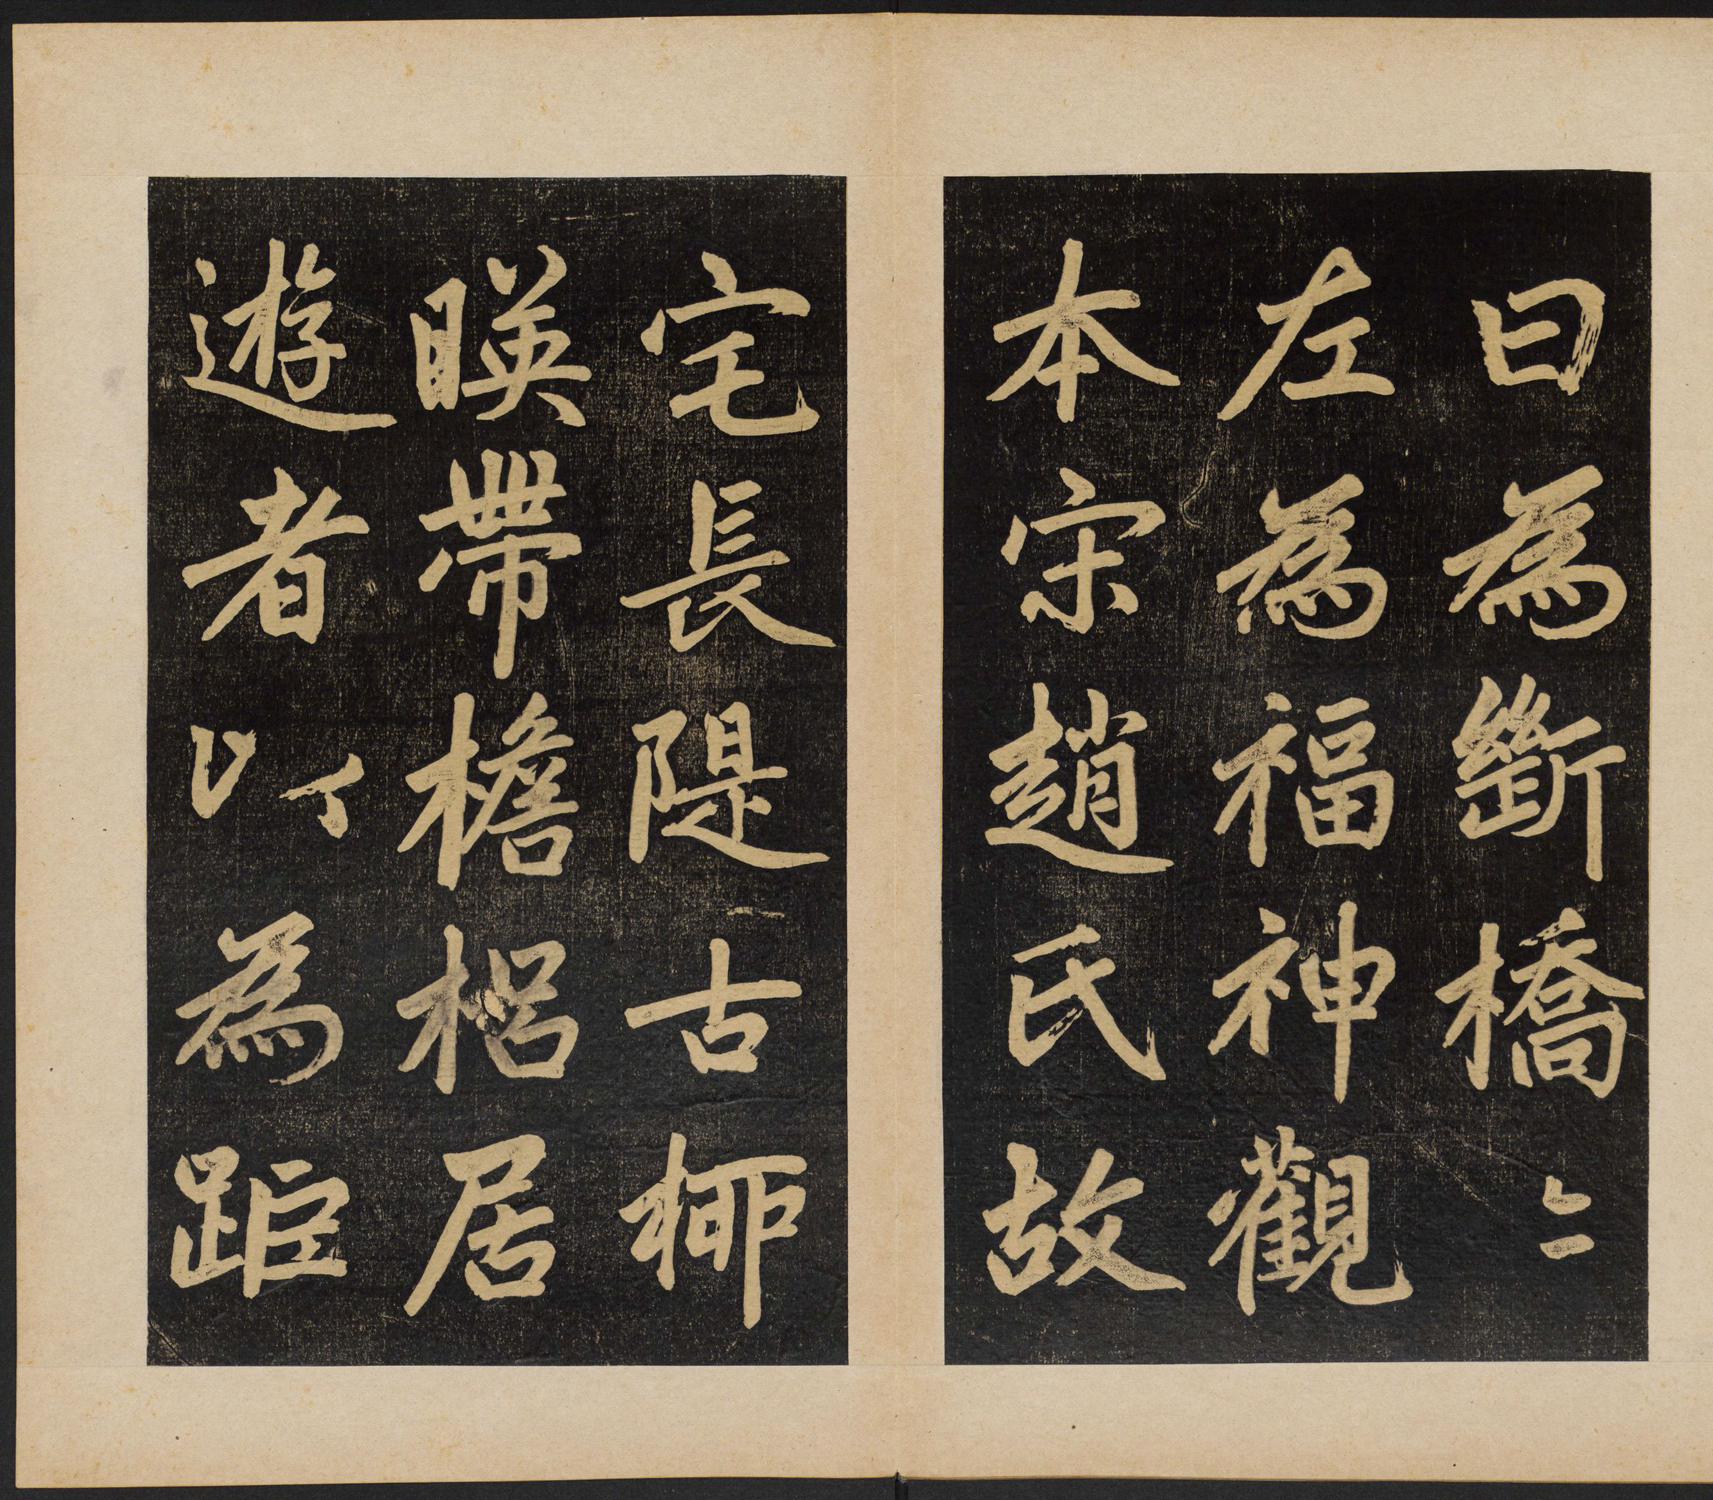 曰為斷橋〻
左為福神觀
本宋趙氏故
宅長隄古柳
暎帶檐梠居
遊者以為距